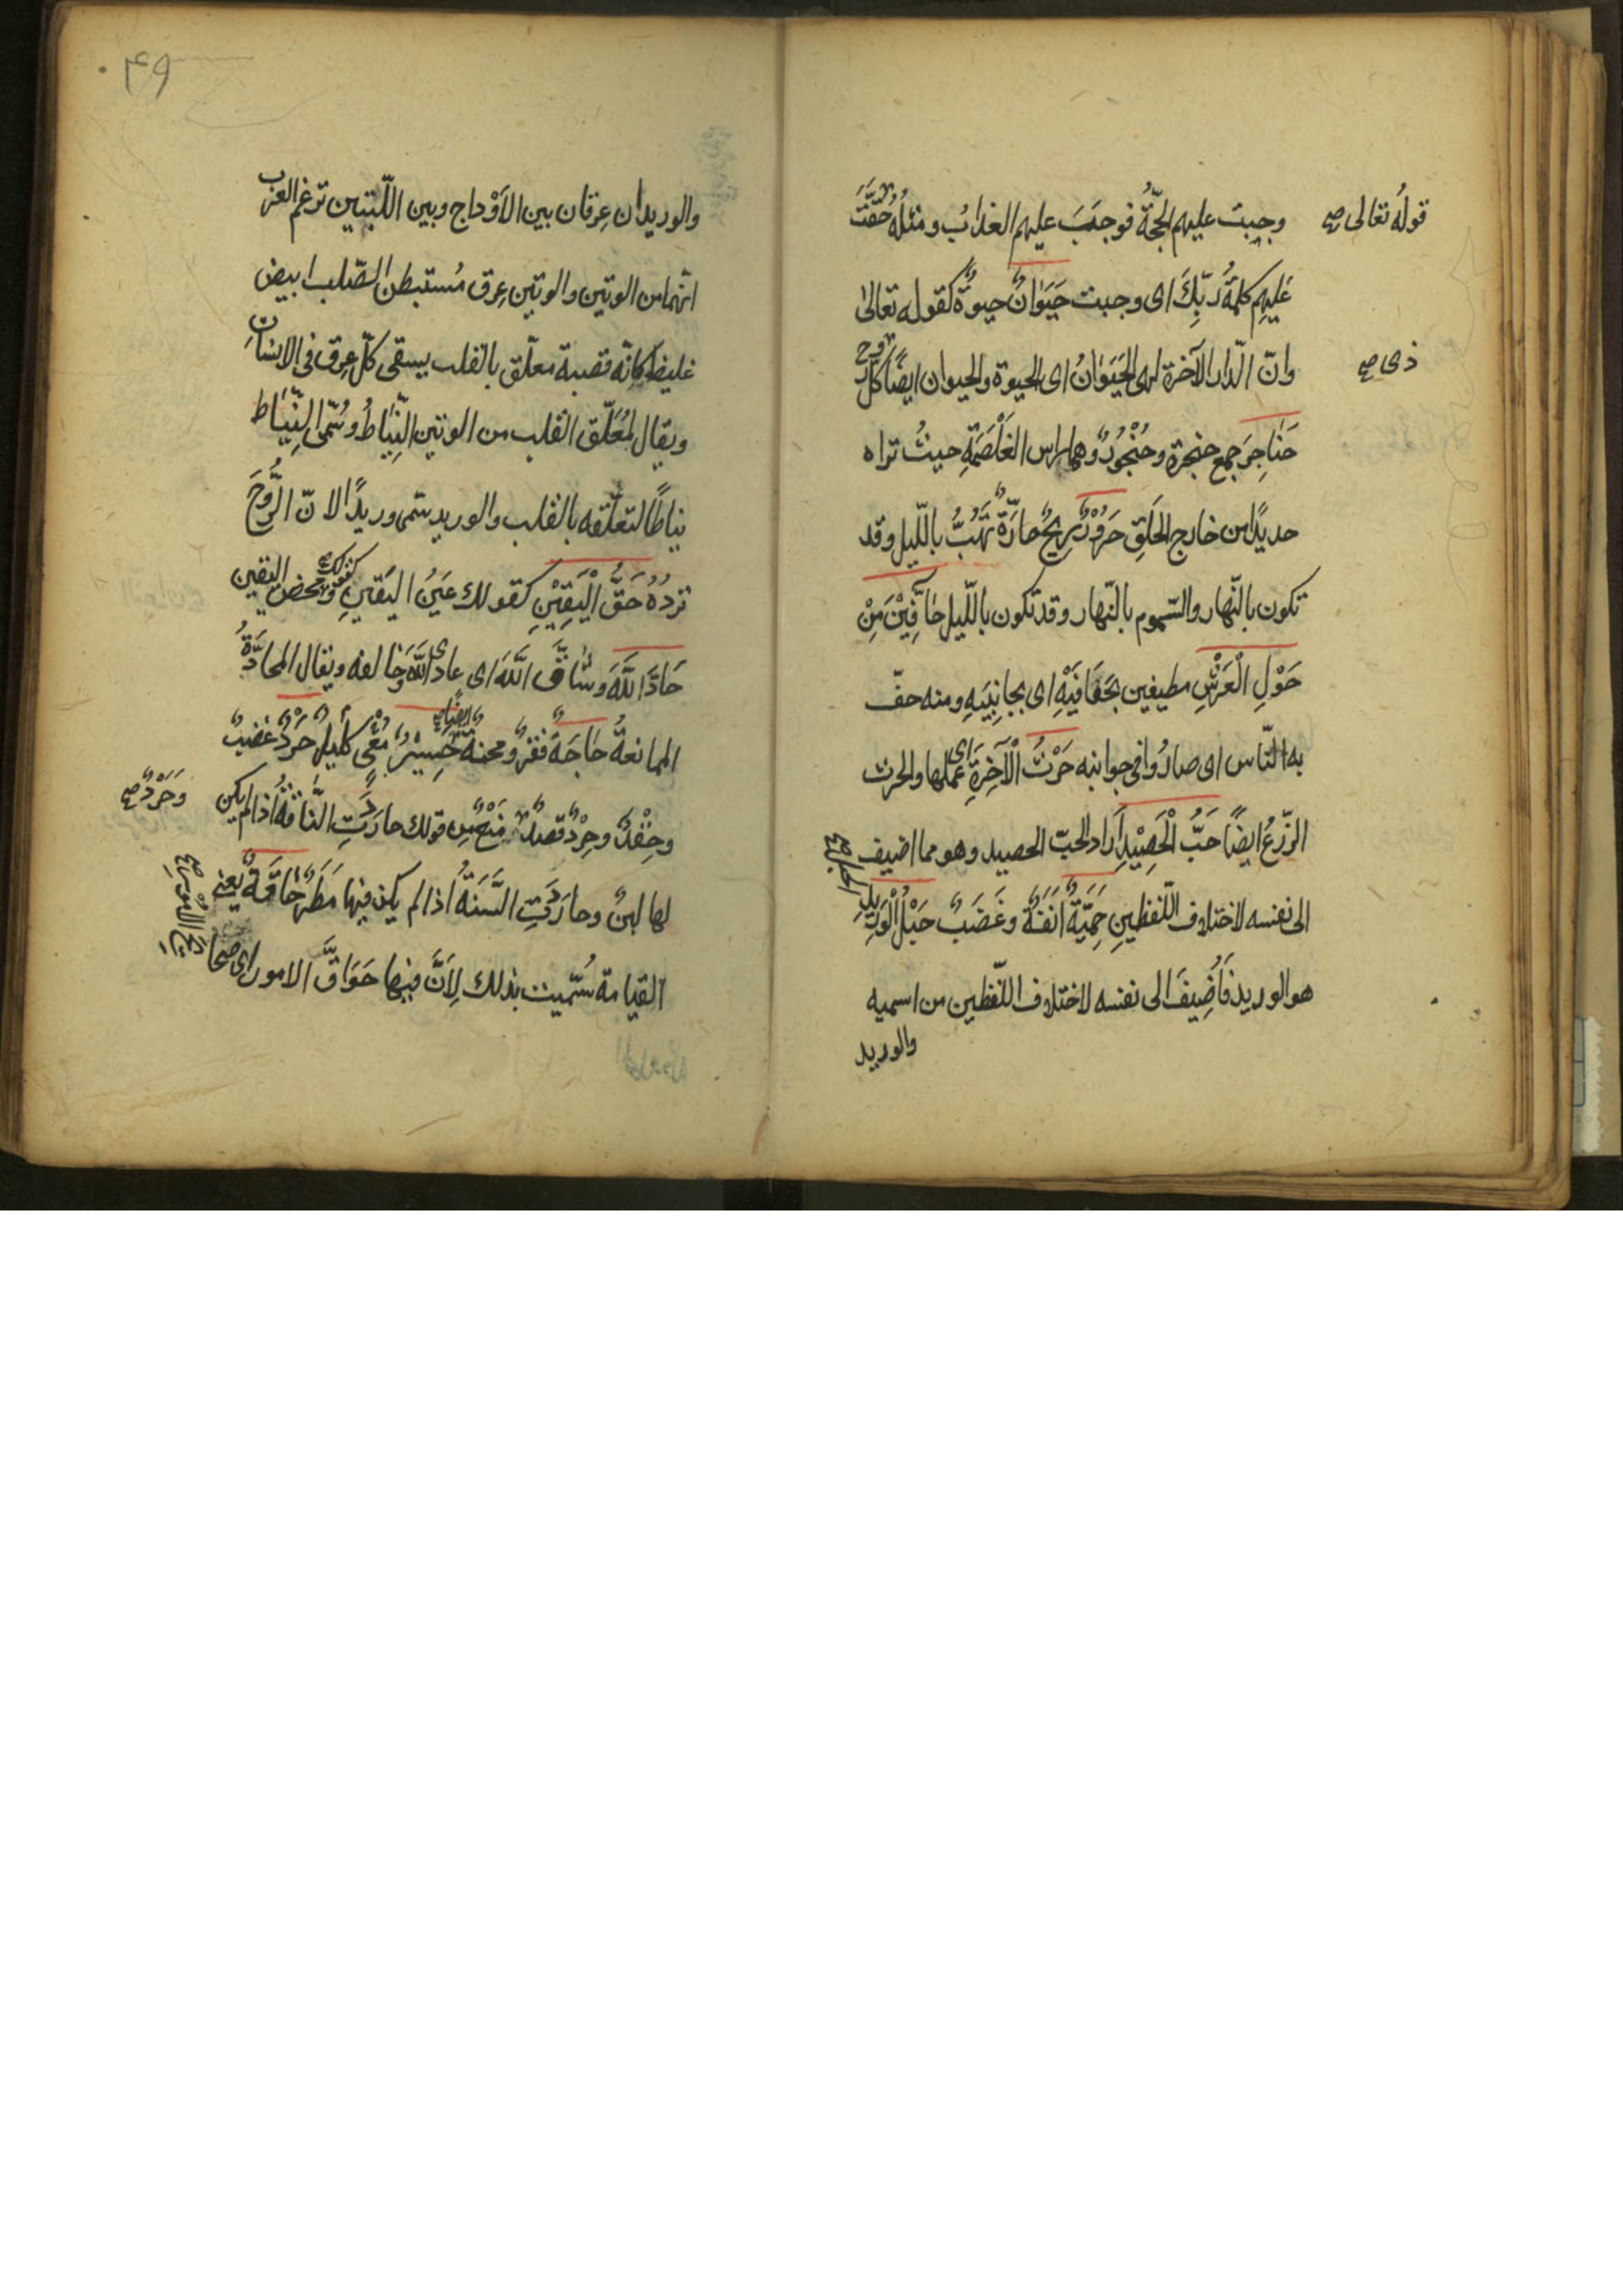 قولهُ تعالى صح
وجبت عليهم الحجّةُ فوجَبَ عليهم العذابُ ومثلُهُ حَقَّتْ
عَلَيهِم كلمةُ رَبِّكَ اى وجبت حَيَوٰانٌ حيوةٌ كقوله تعالىٰ
وانّ الدّار الآخرة لهى الحَيَوٰانُ اى الحيوة والحيوان ايضًا كلّ ذى روح
ذى صح
حَنٰاجِرَ جمع حنجرة وحُنْجُورٌ وهما راس الغَلْصَمَةِ حيثُ تراه
حديدًا من خارج الحَلقِ حَرُوْرٌ رِيحٌ حارّةٌ تَهُبُّ باللّيل وقد
تكون بالنّهار والسّموم بالنّهار وقد تكون باللّيل حٰافِّيْنَ مِنْ
حَوْلِ الْعَرْشِ مطيفين بحَفَافَيْهِ اى بجانِبَيهِ ومنه حفّ
به النّاس اى صارُوا فى جوانبه حَرْثَ الْآخِرَةِ اى عملها والحرث
الزّرعُ ايضًا حَبُّ الْحَصِيْدِ اَراد الحبّ الحصيد وهو مما اضيف
الى نفسه لاختلاف اللّفظينِ حَمِيَّةً اَنَفَةً وغَضَبٌ حَبْلُ الْوَرِيْدِ
هو الوريد فَاُضِيفَ الى نفسه لاختلاف اللّفظين من اسميه
والوريد
۴۹
والوريدان عِرقان بين الأَوْداج وبين اللّبتين تزعم العرب
انّهما من الوتين والوتين عِرق مُستبطن الصّلب ابيض
غليظ كانّه قصبة معلّق بالقلب يسقى كلّ عِرق فى الانسانِ
ويقال لِمُعَلَّق القلب من الوتين النِّيٰاطُ وسُمّى النِّيٰاط
نياطًا لتعلّقه بالقلب والوريد سمّى وريدًا لانّ الرُّوحَ
تردُهُ حَقُّ الْيَقِيْنِ كقولك عَينُ اليَقينِ ومحض اليقين
حَادَّ اللَّهَ وشٰاقَّ اللَّهَ اى عادى اللَّهَ وخالفه ويقال المحادَّةُ
الممانعةُ حٰاجَةً فقرٌ ومحنةٌ ايضًا حَسِيْرٌ مُعْىٍ كليلٌ حَرْدٌ غضبٌ
وحِقْدٌ وحَرْدٌ قصدٌ مَنْعٌ مِن قولك حارَدَتِ النّٰاقةُ اذا لم يكن
وحَرَدٌ صح
لها لبنٌ وحارَدَتِ السَّنَةُ اذا لم يكن فيها مَطَرٌ حٰاقَّةٌ يعنى
القيامة سُمّيت بذلك لِاَنَّ فيها حَوَاقَّ الامور اى صحا